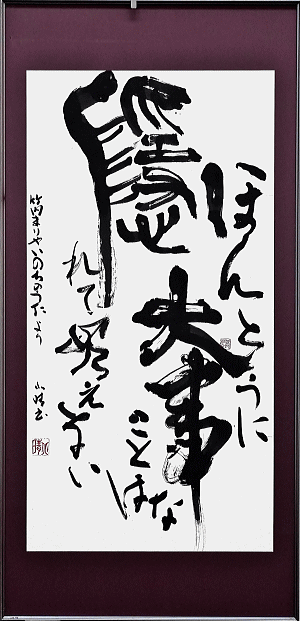 ほんとうに
大事なことは
隠れて見えない
竹内まりや いのちのうた より